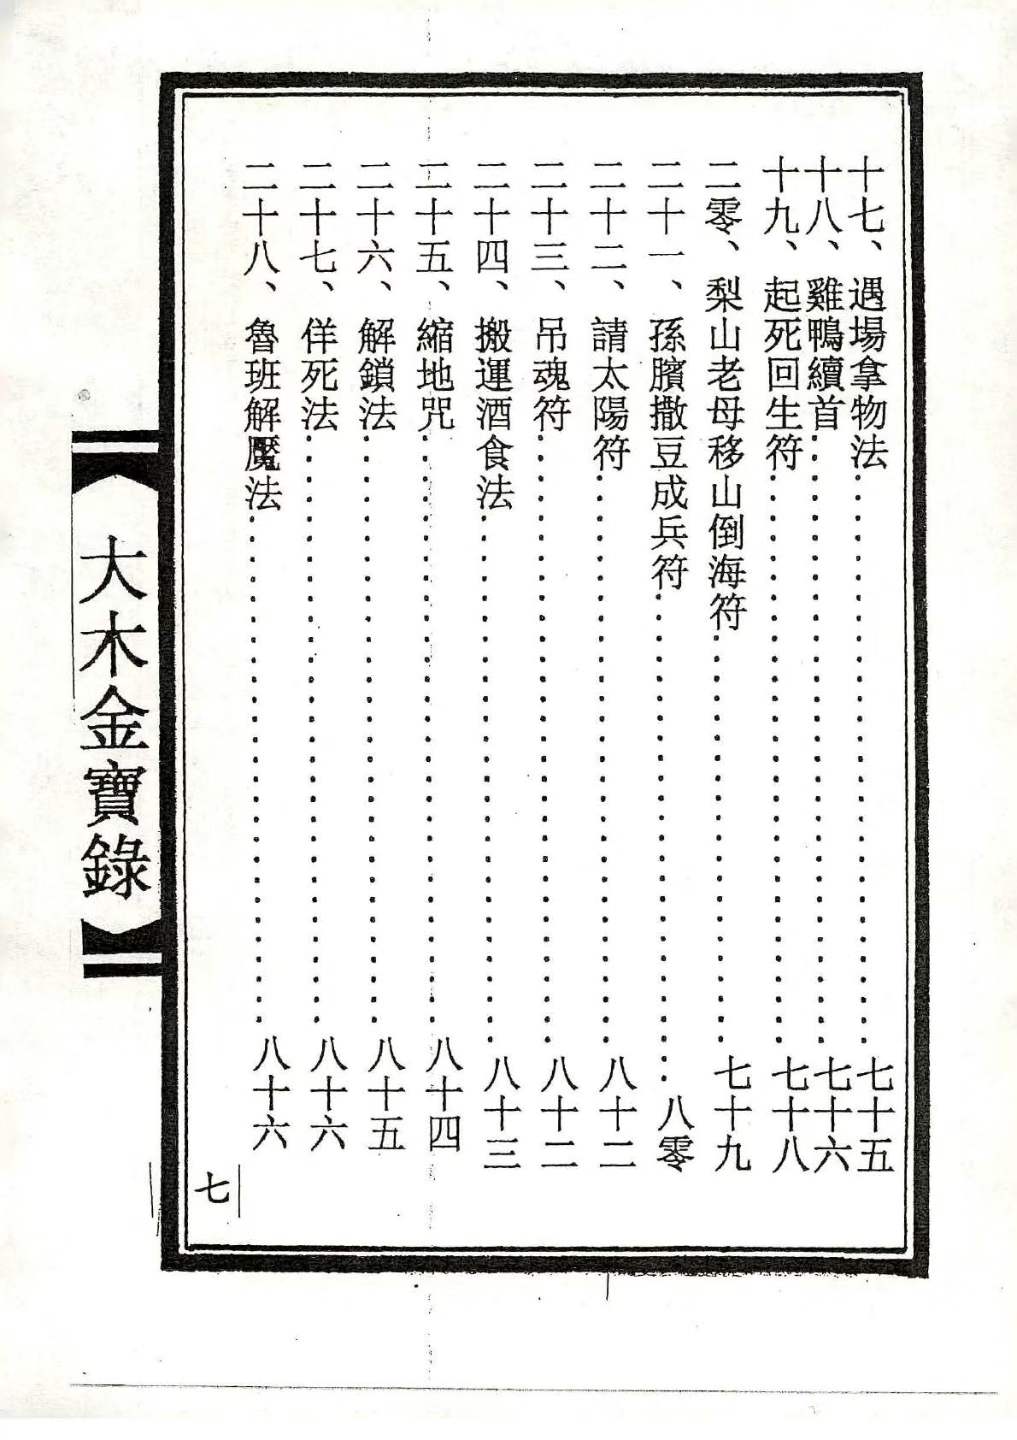 十七、遇場拿物法……七十五
十八、雞鴨續首……七十六
十九、起死回生符……七十八
二零、梨山老母移山倒海符……七十九
二十一、孫臏撒豆成兵符……八零
二十二、請太陽符……八十二
二十三、吊魂符……八十二
二十四、搬運酒食法……八十三
二十五、縮地咒……八十四
二十六、解鎖法……八十五
二十七、佯死法……八十六
二十八、魯班解魘法……八十六
七
【大木金寶錄】